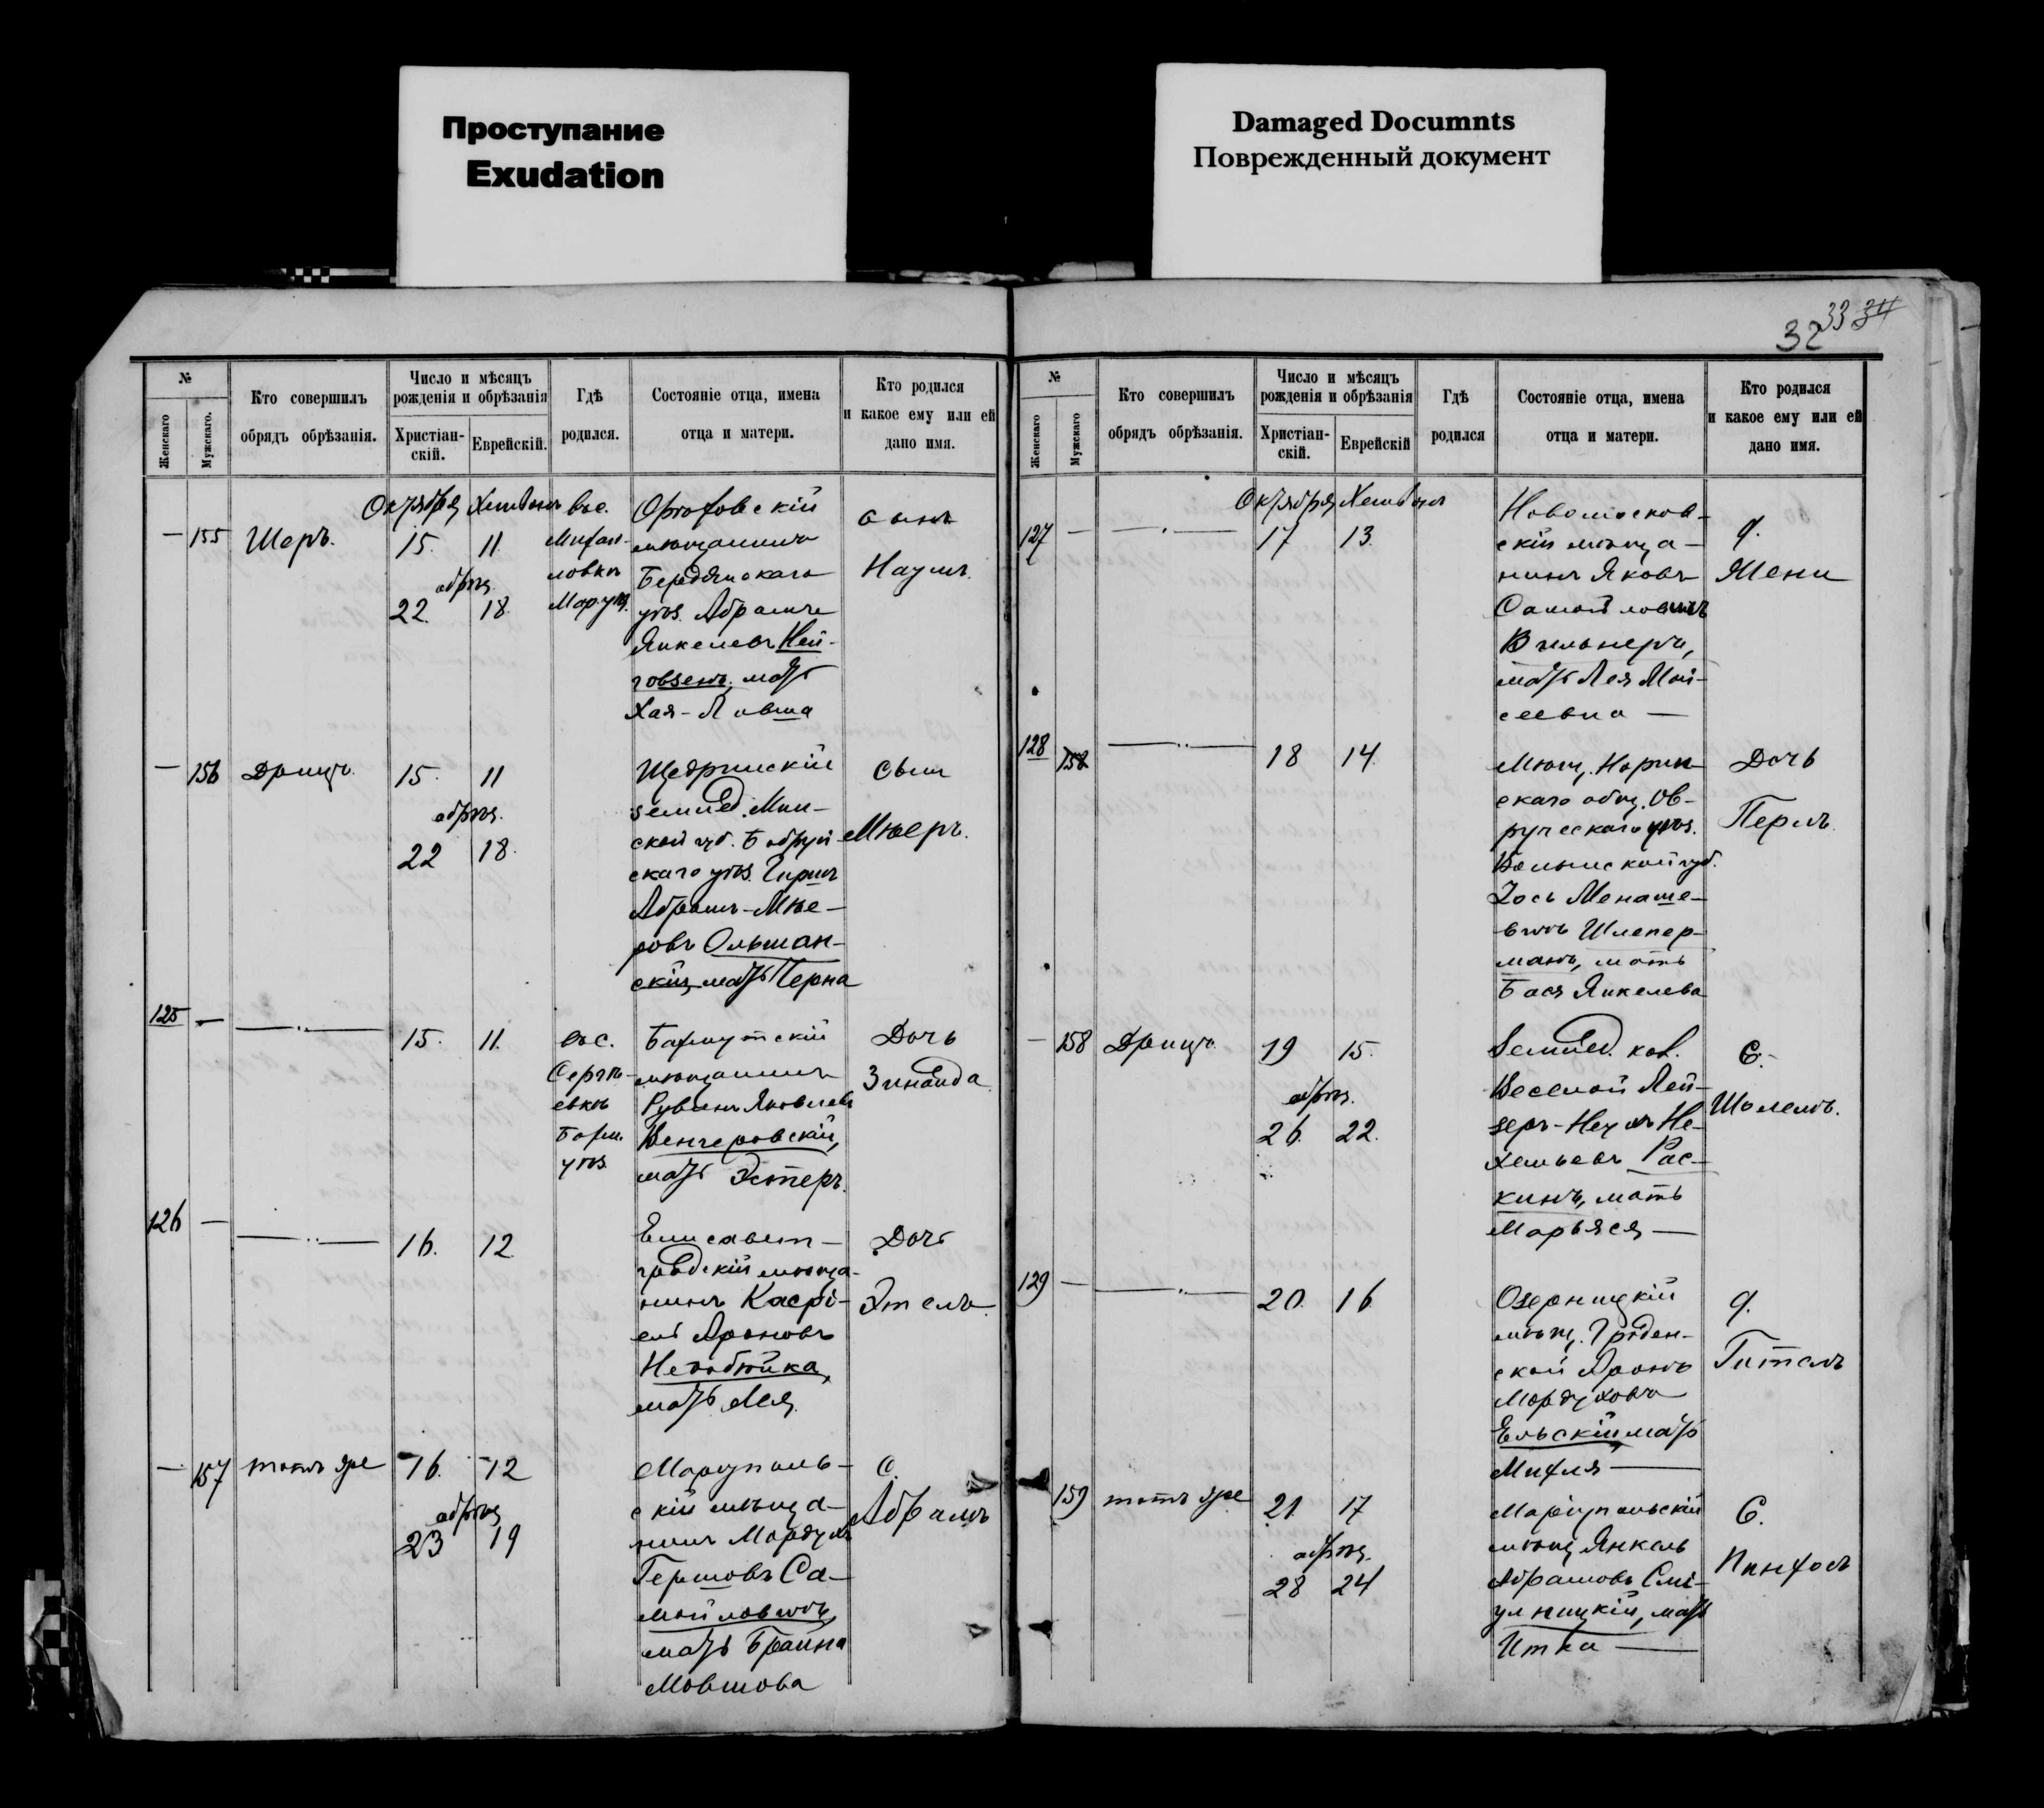 Проступание
Exudation
Damaged Documnts
Поврежденный документ
32 33 34
№
Женскаго
Мужскаго.
Кто совершилъ
обрядъ обрѣзанія.
Число и мѣсяцъ
рожденія и обрѣзанія
Христіан-
скій.
Еврейскій.
Гдѣ
родился.
Состояніе отца, имена
отца и матери.
Кто родился
и какое ему или ей
дано имя.
— 155 Шеръ.
Октября Хешванъ
15. 11.
обрѣз.
22. 18.
въ с.
Михай-
ловкѣ
Мар. уѣз.
Орѣховскій
мѣщанинъ
Бердянскаго
уѣз. Абрамъ
Янкелевъ Ней-
говзенъ, мать
Хая-Ливша
сынъ
Наумъ.
— 156 Дрищъ.
15. 11
обрѣз.
22 18.
Щедринскій
землед. Мин-
ской губ. Бобруй-
скаго уѣз. Гиршъ
Абрамъ-Мѣе-
ровъ Ольшан-
скій, мать Черна
Сынъ
Мѣеръ.
125 —
15. 11.
въ с.
Сергѣ-
евкѣ
Бахм.
уѣз.
Бахмутскій
мѣщанинъ
Рувинъ Яковлевъ
Венгеровскій,
мать Эстеръ.
Дочь
Зинаида
126 —
16. 12
Елисавет-
градскій мѣща-
нинъ Касрі-
елъ Ароновъ
мать Лея.
Дочь
Этель
— 157 тотъ же
16. 12
обрѣз
23 19
Маріуполь-
скій мѣща-
нинъ Мордухъ
Гершовъ Са-
мойловичъ,
мать Брайна
Мовшова
С.
Абрамъ
№
Женскаго
Мужскаго
Кто совершилъ
обрядъ обрѣзанія.
Число и мѣсяцъ
рожденія и обрѣзанія
Христіан-
скій.
Еврейскій
Гдѣ
родился
Состояніе отца, имена
отца и матери.
Кто родился
и какое ему или ей
дано имя.
127 —
Октября Хешванъ
17 13.
Новомосков-
скій мѣща-
нинъ Яковъ
Самойловичъ
Вильнеръ,
мать Лея Мой-
сеевна —
д.
Жени
128 158
18 14.
Мѣщ. Норин-
скаго общ. Ов-
ручскаго уѣз.
Волынской губ.
Іось Менаше-
вичъ Шлепер-
манъ, мать
Бася Янкелева
Дочь
Перль.
— 158 Дрищъ.
19 15.
обрѣз.
26. 22.
Землед. кол.
Веселой Лей-
зеръ-Нехъ Не-
хемьевъ Рас-
кинъ, мать
Марьяся —
С.
Шолемъ.
129 —
20. 16.
Озерницкій
мѣщ. Гроден-
ской Аронъ
Мордуховъ
Ельскій, мать
Михля —
д.
Гитель
159 тотъ же
21. 17
обрѣз.
28 24
Маріупольскій
мѣщ. Янкель
Абрамовъ Смі-
улницкій, мать
Итка —
С.
Пинхосъ